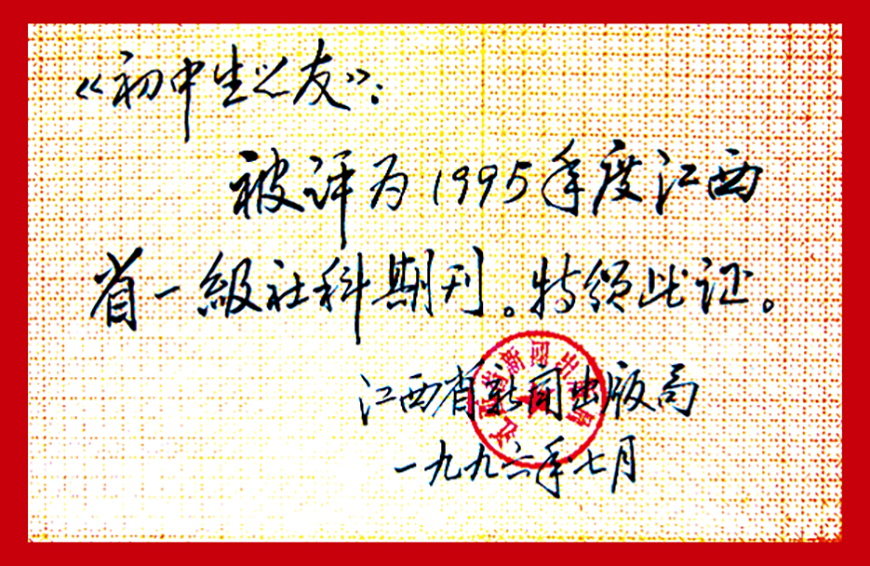 《初中生之友》:
被评为1995年度江西
省一级社科期刊。特颁此证。
江西省新闻出版局
一九九六年七月
江西省新闻出版局